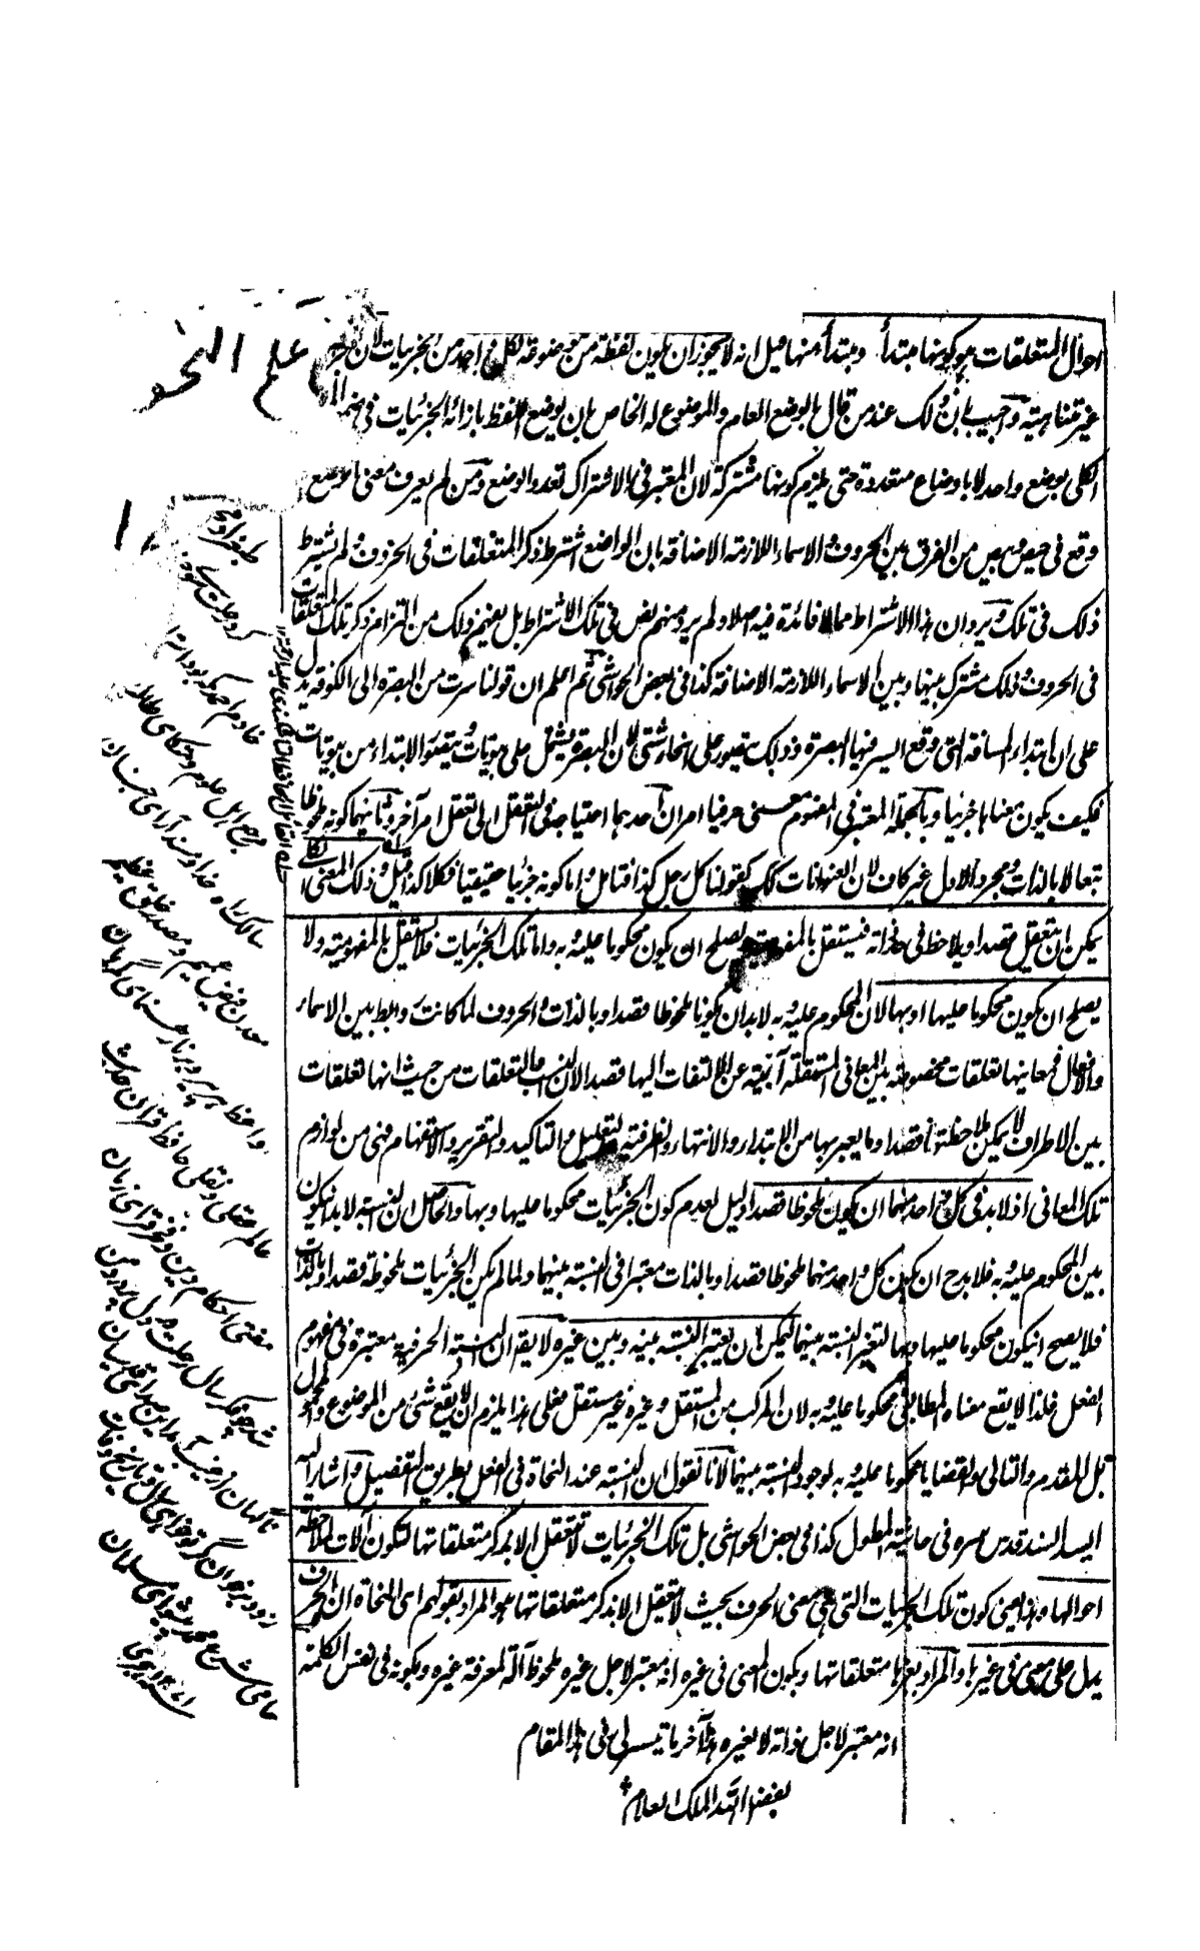 علم النحو
احوال المتعلقات هو كونها مبتدأ ومبتدأ منها قيل انه لا يجوز ان يكون لفظة من موضوعة لكل واحد من الجزئيات لان
غير متناهية واجيب بان ذلك عند من قال بالوضع العام والموضوع له الخاص بان يوضع اللفظ بازاء الجزئيات فى ضمن
الكلى بوضع واحد لا باوضاع متعددة حتى يلزم كونها مشتركة لان المعتبر فى الاشتراك تعدد الوضع ومن لم يعرف معنى الوضع
وقع فى حيص وبيص من الفرق بين الحروف والاسماء اللازمة الاضافة بان الواضع اشترط ذكر المتعلقات فى الحروف ولم يشترط
ذلك فى تلك ويرد ان هذا الاشتراط مما لا فائدة فيه اصلا ولم يرد منهم نص فى تلك الاشتراط بل يفهم ذلك من التزام ذكر تلك المتعلقات
فى الحروف وذلك مشترك بينها وبين الاسماء اللازمة الاضافة كذا فى بعض الحواشى ثم اعلم ان قولنا سرت من البصرة الى الكوفة يدل
على ان ابتداء المسافة التى وقع السير فيها البصرة وذلك يتصور على انحاء شتى لان البصرة يشتمل على بيوتات يتصور الابتداء من بيوتات
فكيف يكون معناها جزئيا وبالجملة المعتبر فى المفهوم معنى حرفيا امران احدهما احتياجه فى التعقل الى تعقل امر آخر وثانيهما كونه ملحوظا
تبعا لا بالذات ومجرد الاول غير كاف لان العنوانات كك كقولنا كل رجل كذا فتامل واما كونه جزئيا حقيقيا فكلا كذا قيل وذلك المعنى الكلى
يمكن ان يتعقل قصدا ويلاحظ فى حد ذاته فيستقل بالمفهومية ويصلح ان يكون محكوما عليه وبه واما تلك الجزئيات فلا يستقل بالمفهومية ولا
يصلح ان يكون محكوما عليها او بها لان المحكوم عليه وبه لا بد ان يكونا ملحوظا قصدا وبالذات والحروف لما كانت روابط بين الاسماء
والافعال فمعانيها تعلقات مخصوصة بين المعانى المستقلة آبية عن الالتفات اليها قصدا لان النسب والتعلقات من حيث انها تعلقات
بين الاطراف لا يمكن ملاحظتها قصدا وما يعبر بها من الابتداء والانتهاء والظرفية والتعليل والتاكيد والتقرير والاستفهام فهى من لوازم
تلك المعانى اذ لا بد فى كل واحد منهما ان يكون ملحوظا قصدا دليل لعدم كون الجزئيات محكوما عليها وبها والحاصل ان النسبة لا بد ان يكون
بين المحكوم عليه وبه فلا بد ح ان يكون كل واحد منهما ملحوظا قصدا وبالذات معتبرا فى النسبة بينهما ولما لم يكن الجزئيات ملحوظة قصدا وبالذات
فلا يصح ان يكون محكوما عليها وبها لتغير النسبة بينهما ليمكن ان يعتبر النسبة بينه وبين غيره لا يقع ان النسبة الحرفية معتبرة فى مفهوم
الفعل فلذا لا يقع معناه المطابقى محكوما عليه وبه لان المركب من المستقل وغيره غير مستقل فعلى هذا يلزم ان لا يقع شئ من الموضوع والمحمول
بل المقدم والتالى والقضايا محكوما عليه وبه لوجود النسبة بينهما لانا نقول ان النسبة عند النحاة فى الفعل بطريق التفصيل واشار اليه
السيد السند قدس سره فى حاشية المطول كذا فى بعض الحواشى بل تلك الجزئيات لا تتعقل الا بذكر متعلقاتها لتكون آلات لملاحظة
احوالها وهذا يعنى كون تلك الجزئيات التى هى معنى الحرف بحيث لا تتعقل الا بذكر متعلقاتها هو المراد بقولهم اى النحاة ان الحرف
يدل على معنى فى غيرها والمراد بغيرها متعلقاتها وبكون المعنى فى غيره انه معتبر لاجل غيره ملحوظ آلة لمعرفة غيره وبكونه فى نفس الكلمة
انه معتبر لاجل ذاته لا لغيره هذا آخر ما تيسر لى فى هذا المقام
بفضل الله الملك العلام
طغرا و
كرد رحلت
خادم احمد كه بود
مرجع اهل علوم
سالك راه خدا مسند آراى
معدن فيض عميم و مصدر خلق عظيم
واعظ هر پير و برنا رهنماى گمرهان
عالم عقلى و نقلى حافظ قرآن حديث
مفتى احكام دين و فخر قراى زمان
شد چو فكر سال رحلت در دل پردرد من
ناگهان از غيب آمد اين صدا
زود برخوان گر تو خواهى سال و تاريخ وفات
حامى شرع محمد پيشواى مسلمان